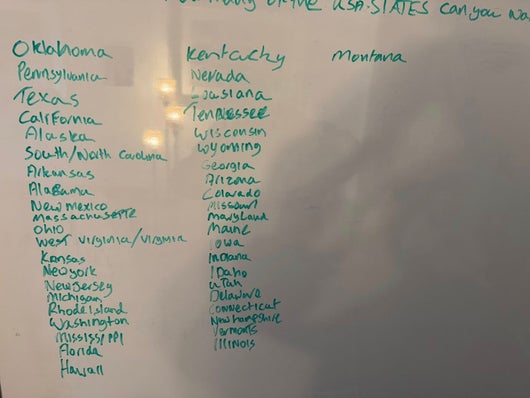 how many of the USA STATES can you na
Oklahoma
Pennsylvania
Texas
California
Alaska
South/North Carolina
Arkansas
Alabama
New mexico
Massachusette
Ohio
West Virginia/Virginia
Kansas
New york
New Jersey
Michigan
Rhode Island
Washington
Mississippi
Florida
Hawaii
Kentucky
Nevada
Lousiana
Tennessee
Wisconsin
Wyoming
Georgia
Arizona
Colorado
Missouri
Maryland
Maine
Iowa
Indiana
Idaho
Utah
Delaware
Connecticut
New hampshire
Vermont
Illinois
Montana